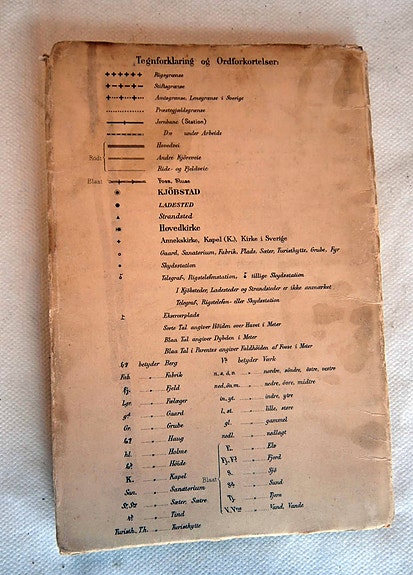 Tegnforklaring og Ordforkortelser:
Rigsgrænse
Stiftsgrænse
Amtsgrænse, Lensgrænse i Sverige
Præstegjældsgrænse
Jernbane (Station)
Do under Arbeide
Hovedvei
Rødt Andre Kjøreveie
Ride- og Fjeldvei
Blaat Foss, Bluss
KJÖBSTAD
LADESTED
Strandsted
Hovedkirke
Annekskirke, Kapel (K.), Kirke i Sverige
Gaard, Sanatorium, Fabrik, Plads, Sæter, Turisthytte, Grube, Fyr
Skydsstation
Telegraf-, Rigstelefonstation, tillige Skydsstation
I Kjøbsteder, Ladesteder og Strandsteder er ikke anmærket
Telegraf, Rigstelefon- eller Skydsstation
Exercerplads
Sorte Tal angiver Höiden over Havet i Meter
Blaa Tal angiver Dybden i Meter
Blaa Tal i Parentes angiver Faldhöiden af Fosse i Meter
betyder Berg
Fab. Fabrik
Fj. Fjeld
Fælæger
Gaard
Gr. Grube
Haug
hl. Holme
Höide
K. Kapel
San. Sanatorium
Sæter, Sætre
Tind
Turisth., Th. Turisthytte
betyder Vark
n. s. ö. v. nordre, söndre, östre, vestre
ned. öv. m. nedre, övre, midtre
in. yt. indre, ytre
l. st. lille, store
gl. gammel
nedl. nedlagt
E. Elv
Fj. Fjord
S. Sjö
Blaat Sund
Tj. Tjern
V. Vand, Vande